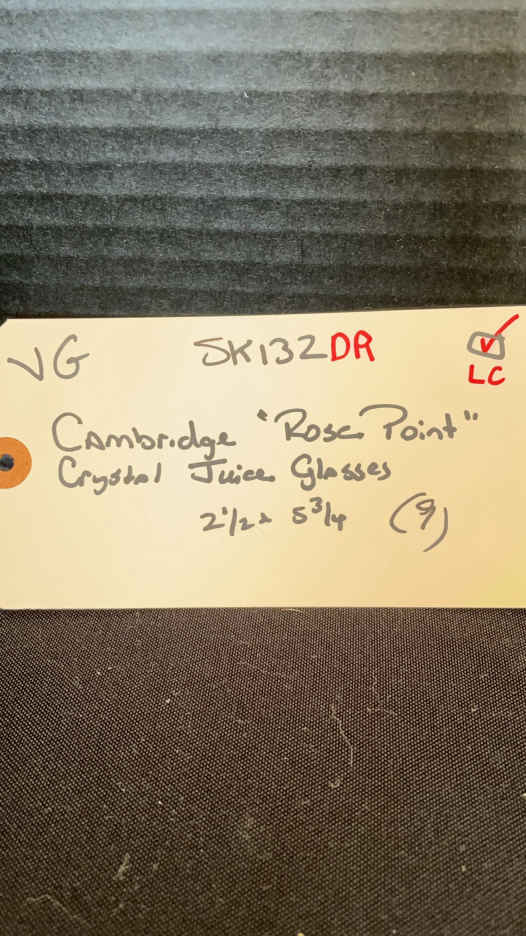 VG SK132DR LC
Cambridge "Rose Point"
Crystal Juice Glasses
2 1/2 x 5 3/4 (9)